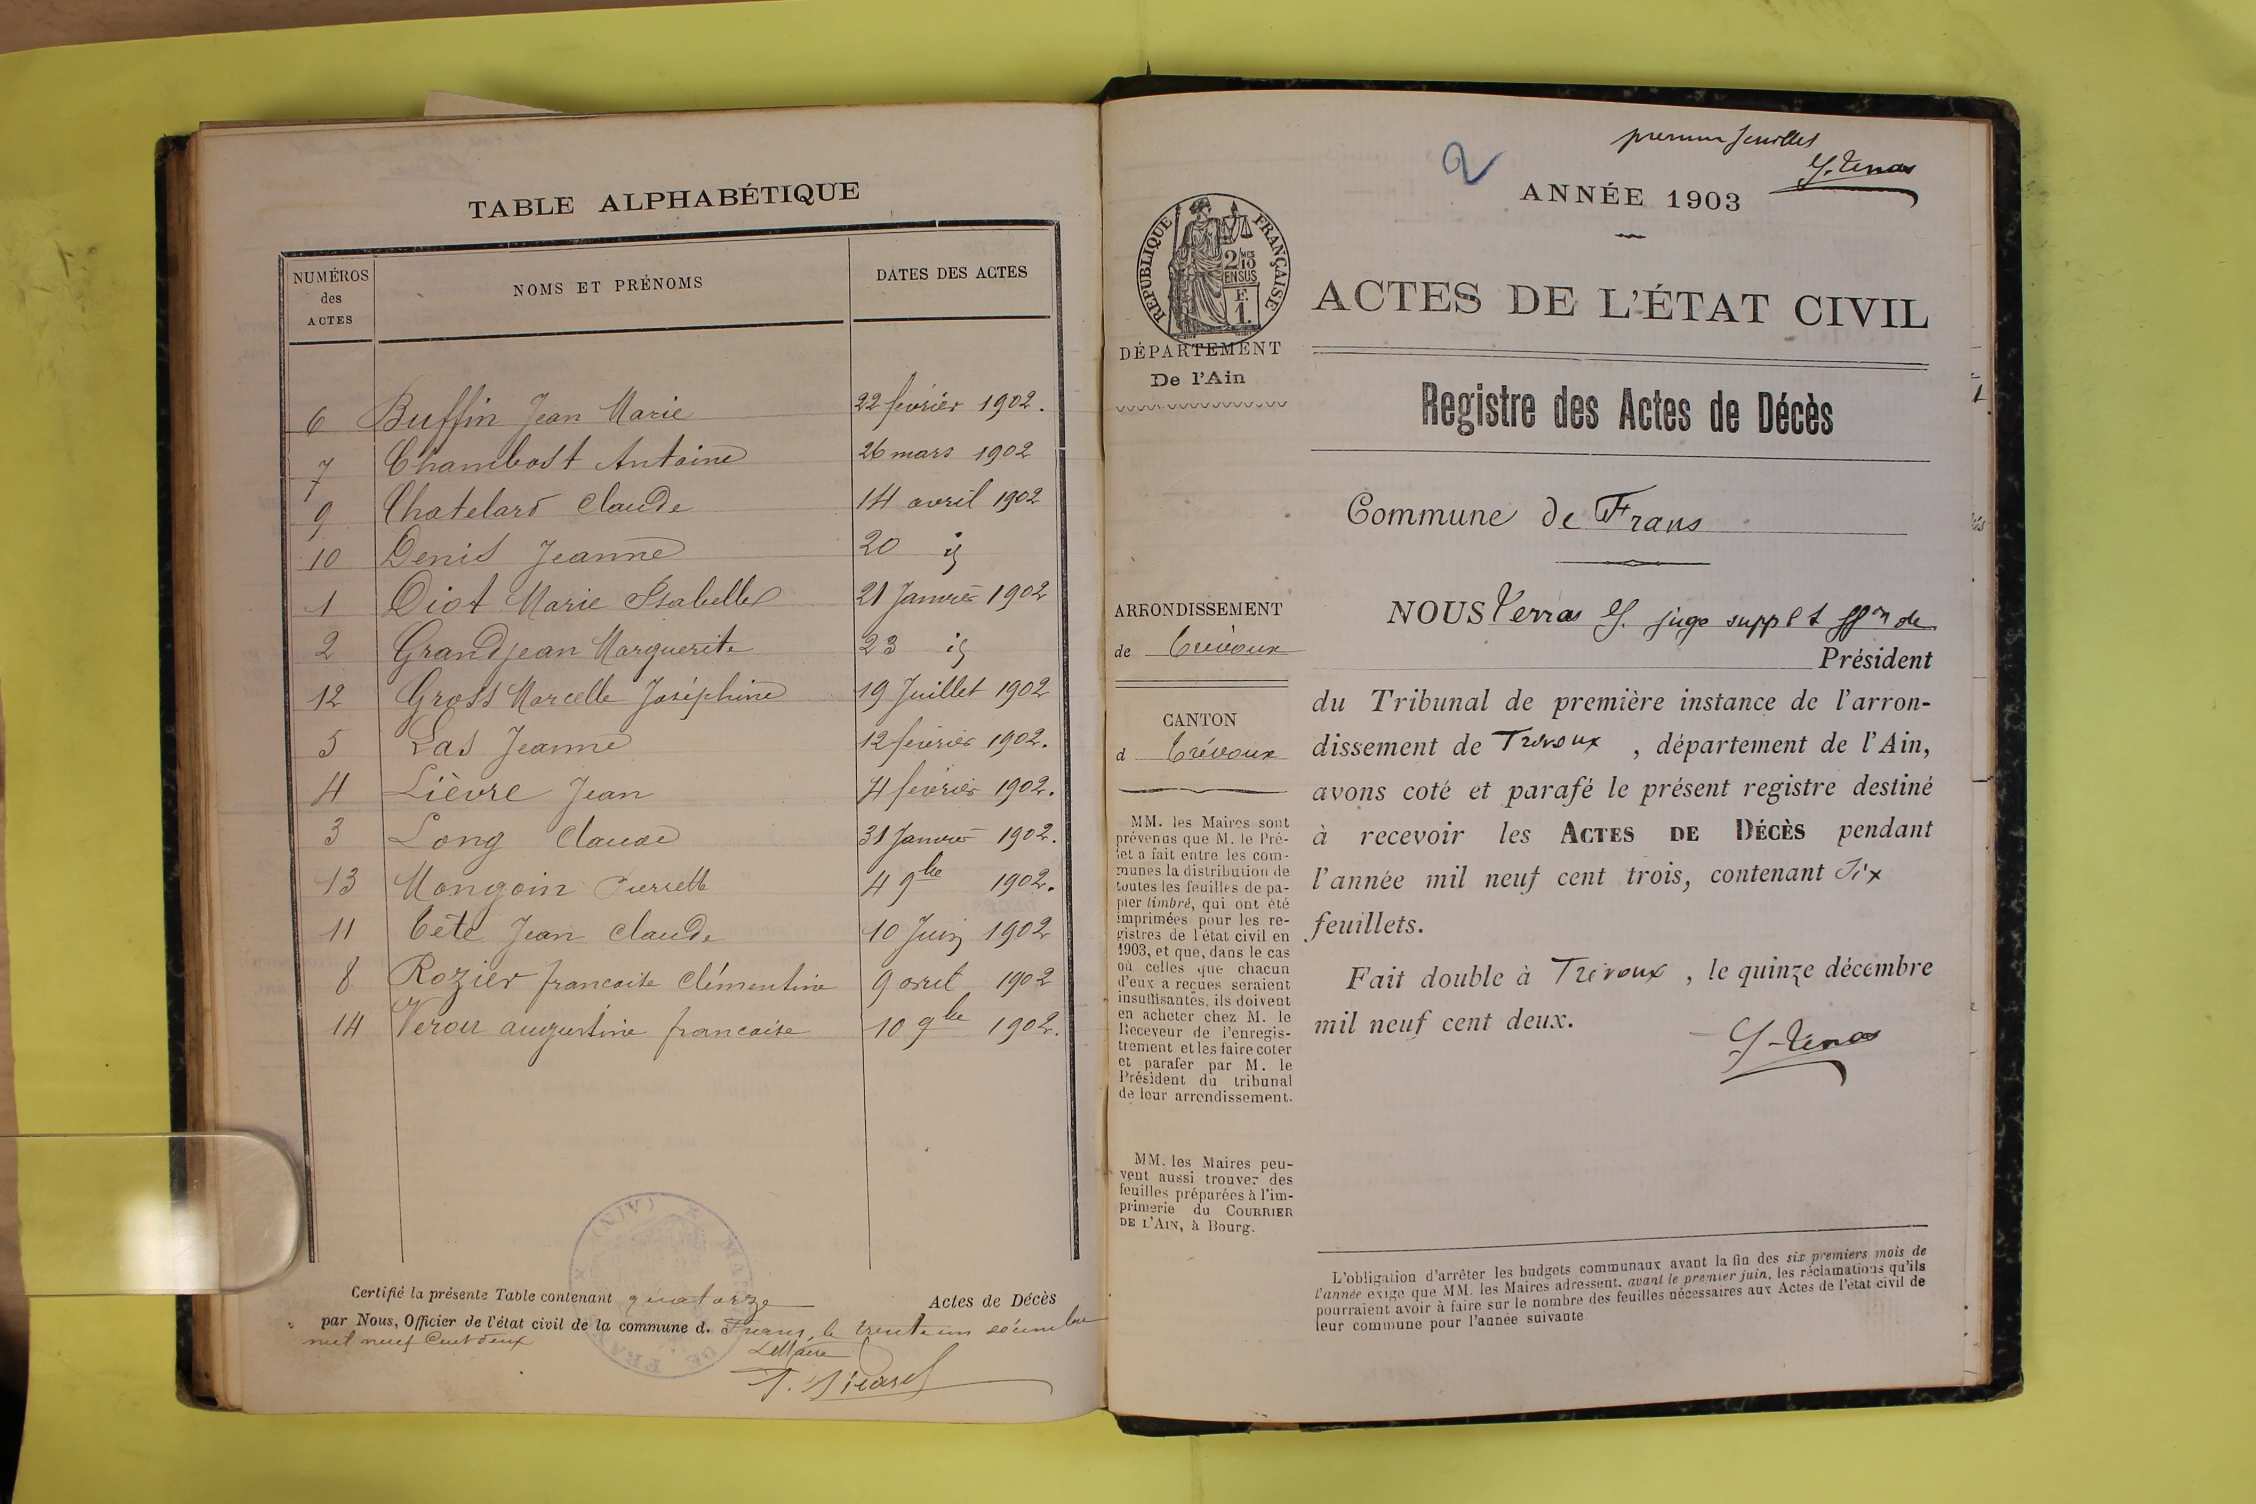 TABLE ALPHABÉTIQUE
NUMÉROS
des
ACTES
NOMS ET PRÉNOMS
DATES DES ACTES
6 Buffin Jean Marie 22 février 1902.
7 Chambost Antoine 26 mars 1902
9 Chatelard Claude 14 avril 1902
10 Denis Jeanne 20 id
1 Diot Marie Isabelle 21 Janvier 1902
2 Grandjean Marguerite 23 id
12 Gross Marcelle Joséphine 19 Juillet 1902
5 Las Jeanne 12 février 1902.
4 Lièvre Jean 4 février 1902.
3 Long Claude 31 Janvier 1902.
13 Mongoin Pierrette 4 9bre 1902.
11 Tête Jean Claude 10 Juin 1902
8 Rozier francoise Clémentine 9 avril 1902
14 augustine francoise 10 9bre 1902.
Certifié la présente Table contenant quatorze Actes de Décès
par Nous, Officier de l'état civil de la commune d. Frans, le trente un décembre
mil neuf Cent deux
Le Maire
premier feuillet
2
ANNÉE 1903
RÉPUBLIQUE FRANÇAISE
2/10 MES
EN SUS
F.
1.
ACTES DE L'ÉTAT CIVIL
DÉPARTEMENT
De l'Ain
Registre des Actes de Décès
Commune de Frans
ARRONDISSEMENT
de Trévoux
CANTON
d Trévoux
MM. les Maires sont
prévenus que M. le Pré-
fet a fait entre les com-
munes la distribution de
toutes les feuilles de pa-
pier timbré, qui ont été
imprimées pour les re-
gistres de l'état civil en
1903, et que, dans le cas
où celles que chacun
d'eux a reçues seraient
insuffisantes, ils doivent
en acheter chez M. le
Receveur de l'enregis-
trement et les faire coter
et parafer par M. le
Président du tribunal
de leur arrondissement.
MM. les Maires peu-
vent aussi trouver des
feuilles préparées à l'im-
primerie du COURRIER
DE L'AIN, à Bourg.
NOUS juge suppt ffon de
Président
du Tribunal de première instance de l'arron-
dissement de Trévoux, département de l'Ain,
avons coté et parafé le présent registre destiné
à recevoir les ACTES DE DÉCÈS pendant
l'année mil neuf cent trois, contenant Six
feuillets.
Fait double à Trévoux, le quinze décembre
mil neuf cent deux.
L'obligation d'arrêter les budgets communaux avant la fin des six premiers mois de
l'année exige que MM. les Maires adressent, avant le premier juin, les réclamations qu'ils
pourraient avoir à faire sur le nombre des feuilles nécessaires aux Actes de l'état civil de
leur commune pour l'année suivante